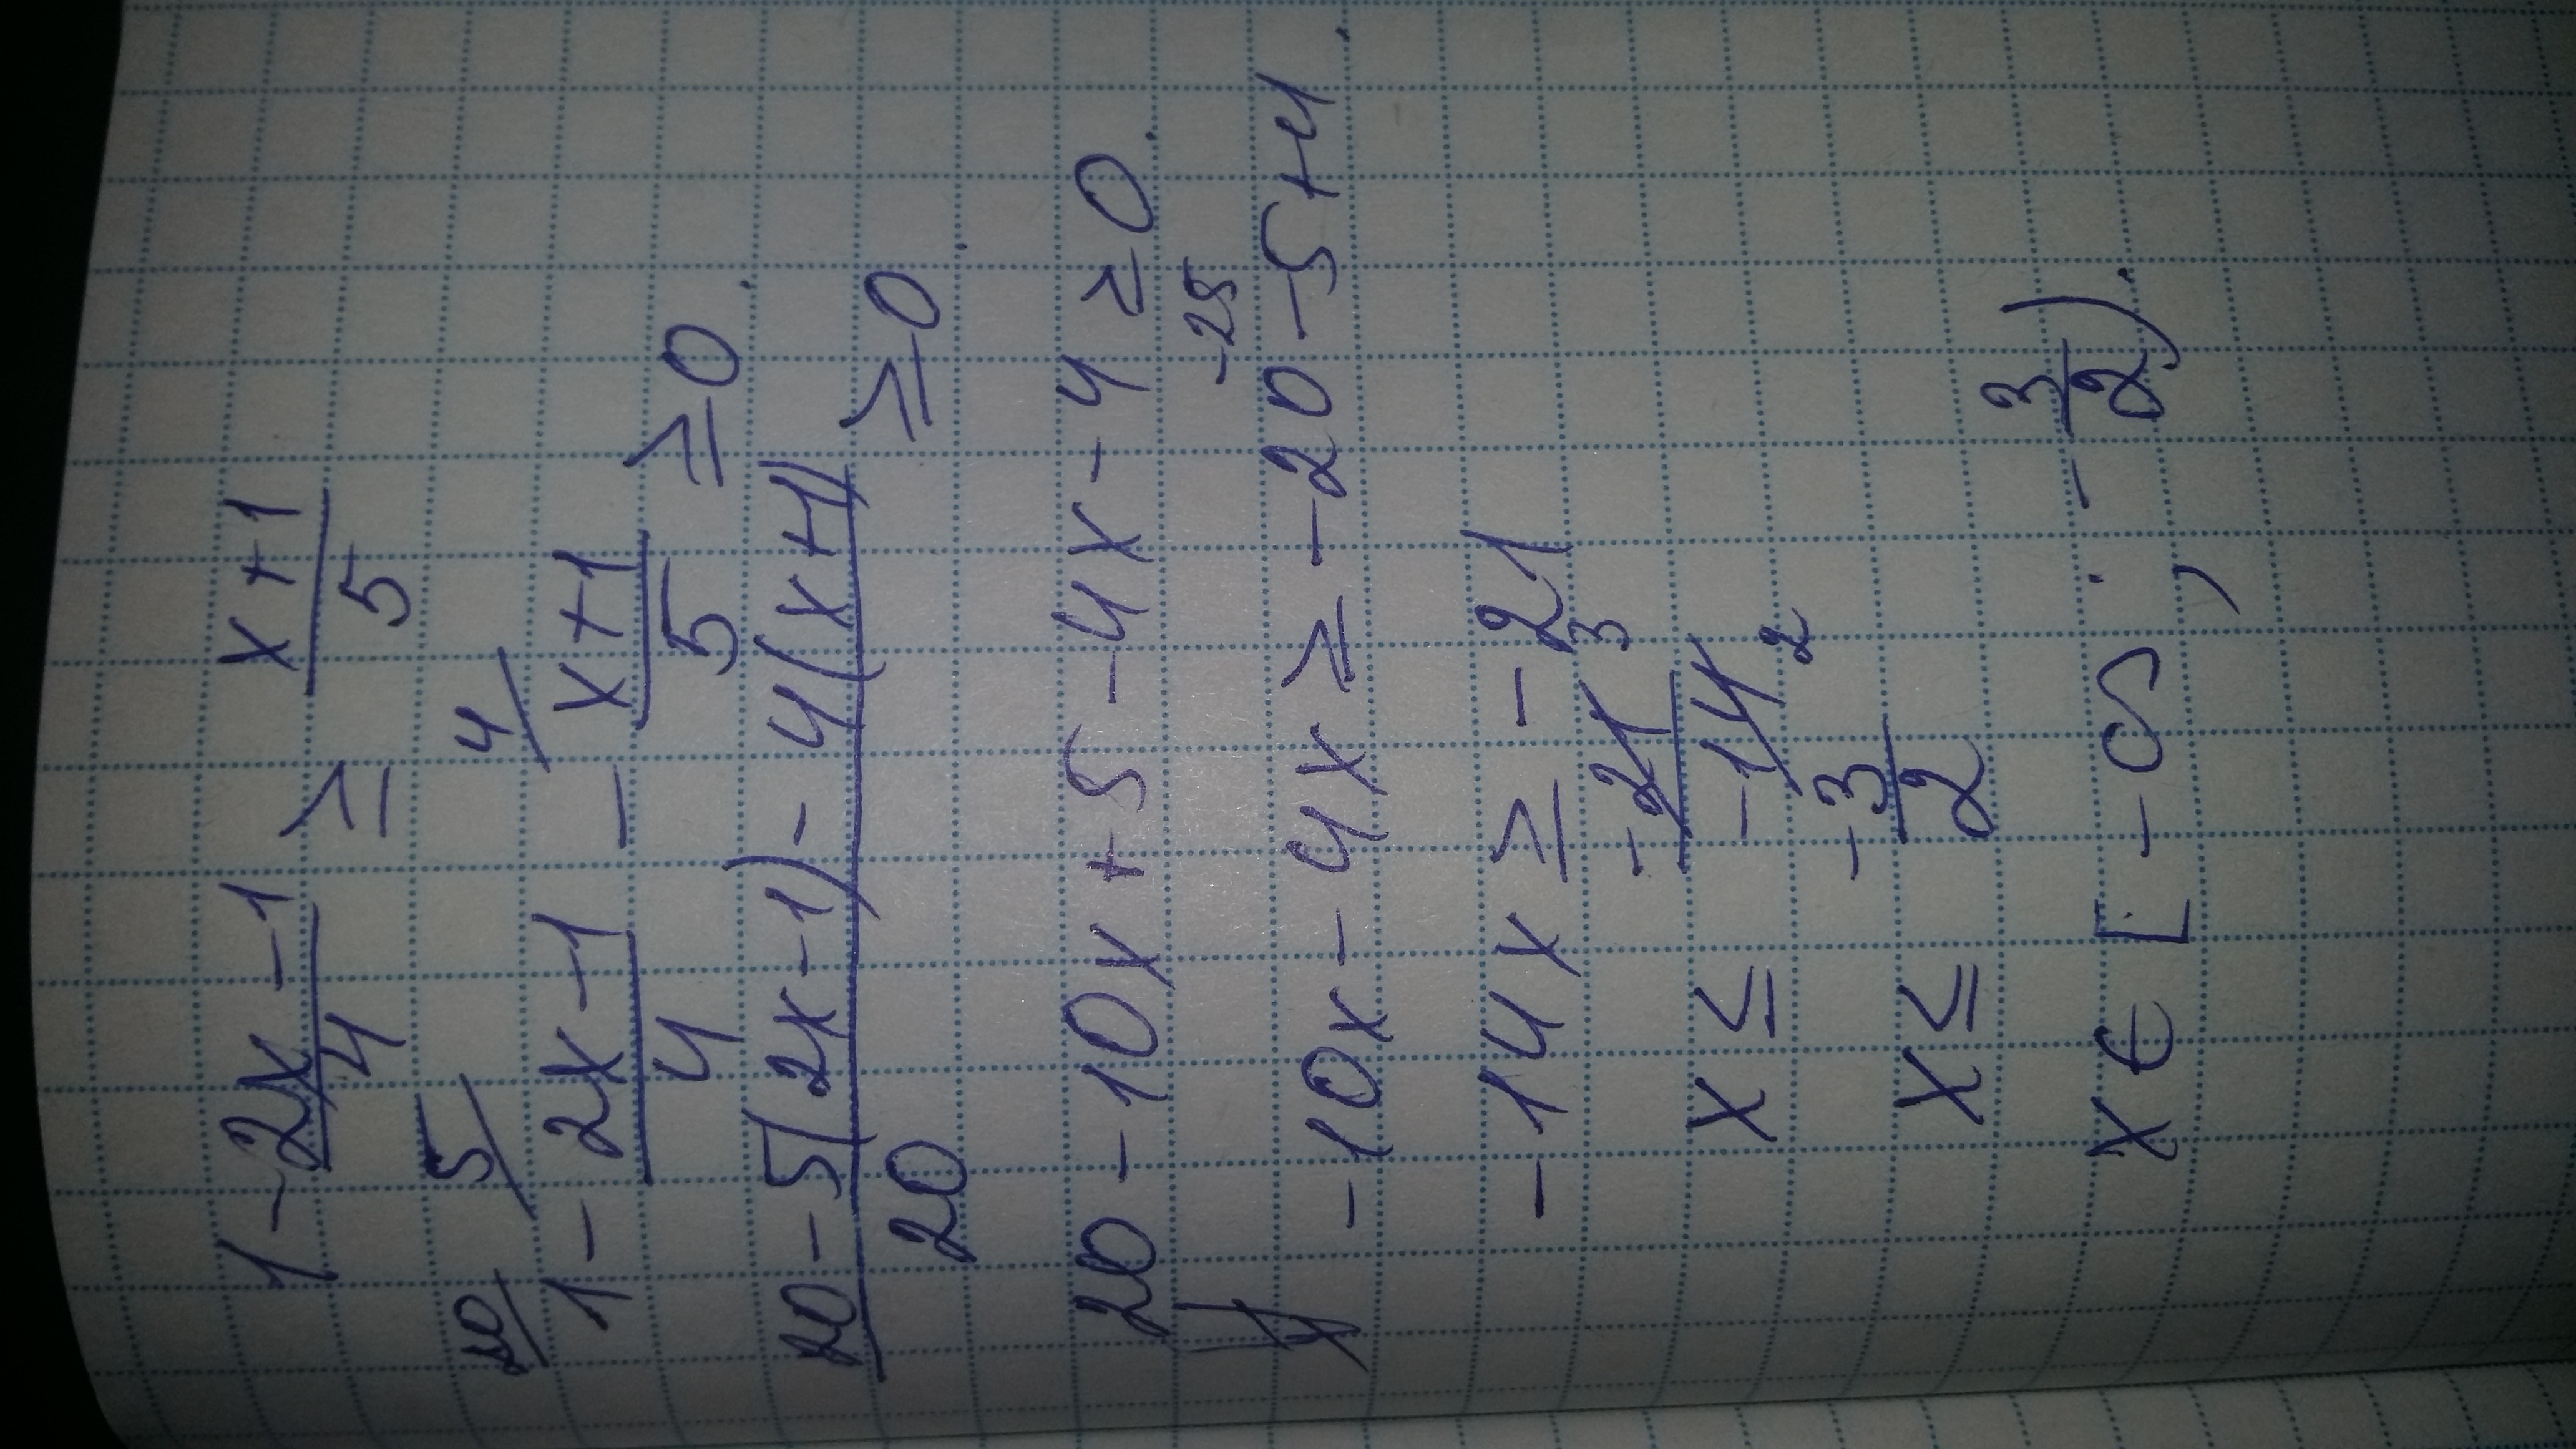 1 - (2x-1)/4 ≥ (x+1)/5
20/ 1 - 5/ (2x-1)/4 - 4/ (x+1)/5 ≥ 0.
(20-5(2x-1)-4(x+1))/20 ≥ 0.
20-10x+5-4x-4 ≥ 0.
-25
-10x-4x ≥ -20-5+4.
-14x ≥ -21
x ≤ -21 3/-14 2
x ≤ -3/2
x ∈ [-∞; -3/2).